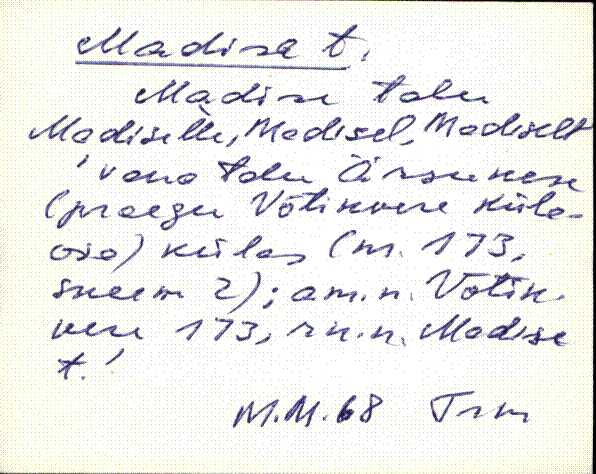 Madise t.
Madise talu
Madiselle, Madisel, Madiselt
'vana talu Ärsukese
(praegu Võtikvere küla-
osa) külas (nr. 173,
skeem 2); am.n. Võtik-
vere 173, rn.n. Madise
t.'
M.M. 68 Trm